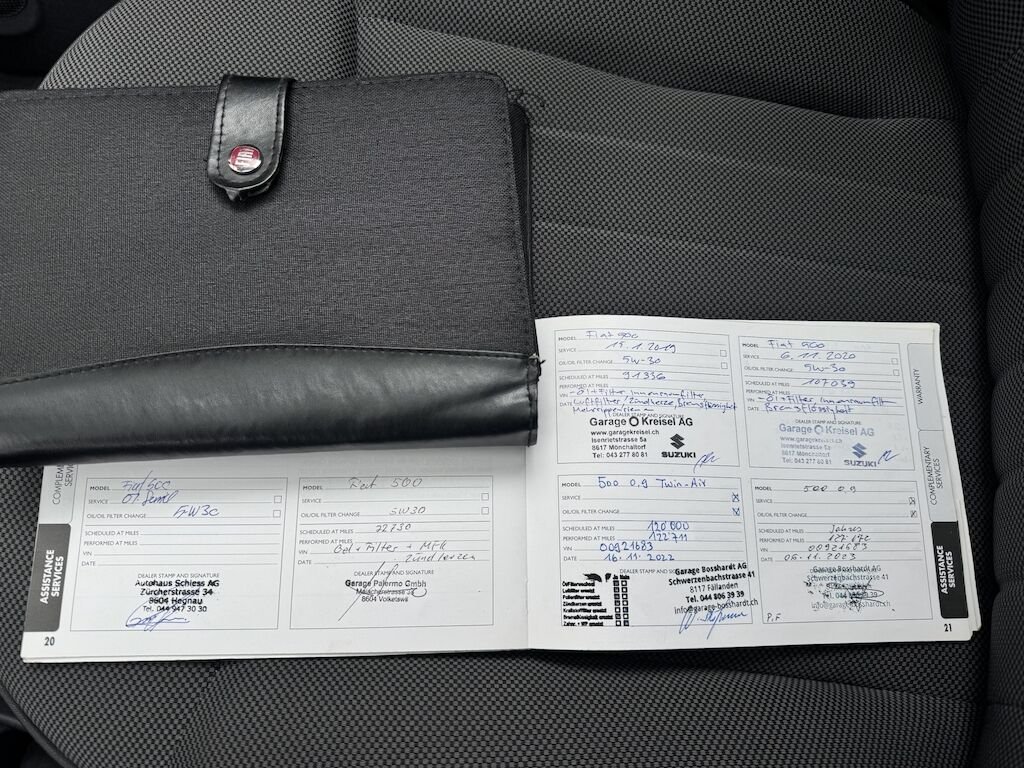 MODEL Fiat 500
SERVICE
OIL/OIL FILTER CHANGE 5W30
SCHEDULED AT MILES
PERFORMED AT MILES
VIN
DATE
DEALER STAMP AND SIGNATURE
Autohaus Schiess AG
Zürcherstrasse 34
8604 Hegnau
Tel. 044 947 30 30
Fiat 500
SERVICE
OIL/OIL FILTER CHANGE 5W30
SCHEDULED AT MILES
PERFORMED AT MILES
VIN Oel + Filter + MFK
DATE Zündkerzen
DEALER STAMP AND SIGNATURE
Garage Palermo Gmbh
8604 Volketswil
ASSISTANCE
SERVICES
20
MODEL Fiat 500
SERVICE 15.1.2019
OIL/OIL FILTER CHANGE 5W-30
SCHEDULED AT MILES 91336
PERFORMED AT MILES
VIN - Öl + Filter, Innenraumfilter,
DATE Luftfilter, Zündkerze, Bremsflüssigkeit
DEALER STAMP AND SIGNATURE
Garage Kreisel AG
www.garagekreisel.ch
Isenrietstrasse 5a
8617 Mönchaltorf
Tel: 043 277 80 81
SUZUKI
MODEL Fiat 500
SERVICE 6.11.2020
OIL/OIL FILTER CHANGE 5W-30
SCHEDULED AT MILES 107039
PERFORMED AT MILES
VIN - Öl + Filter, Innenraumfilt
DATE Bremsflüssigkeit
DEALER STAMP AND SIGNATURE
Garage Kreisel AG
www.garagekreisel.ch
Isenrietstrasse 5a
8617 Mönchaltorf
Tel: 043 277 80 81
SUZUKI
MODEL 500 0.9 Twin-Air
SERVICE
OIL/OIL FILTER CHANGE
SCHEDULED AT MILES 120'000
PERFORMED AT MILES 122'711
VIN 00921683
DATE 16.11.2022
DEALER STAMP AND SIGNATURE
Garage Bosshardt AG
Schwerzenbachstrasse 41
8117 Fällanden
Tel. 044 806 39 39
info@garage-bosshardt.ch
MODEL 500 0.9
SERVICE
OIL/OIL FILTER CHANGE
SCHEDULED AT MILES Jahres
PERFORMED AT MILES
VIN 00921683
DATE 06.11.2023
DEALER STAMP AND SIGNATURE
Garage Bosshardt AG
Schwerzenbachstrasse 41
Tel. 044 806 39 39
info@garage-bosshardt.ch
WARRANTY
COMPLEMENTARY
SERVICES
ASSISTANCE
SERVICES
21